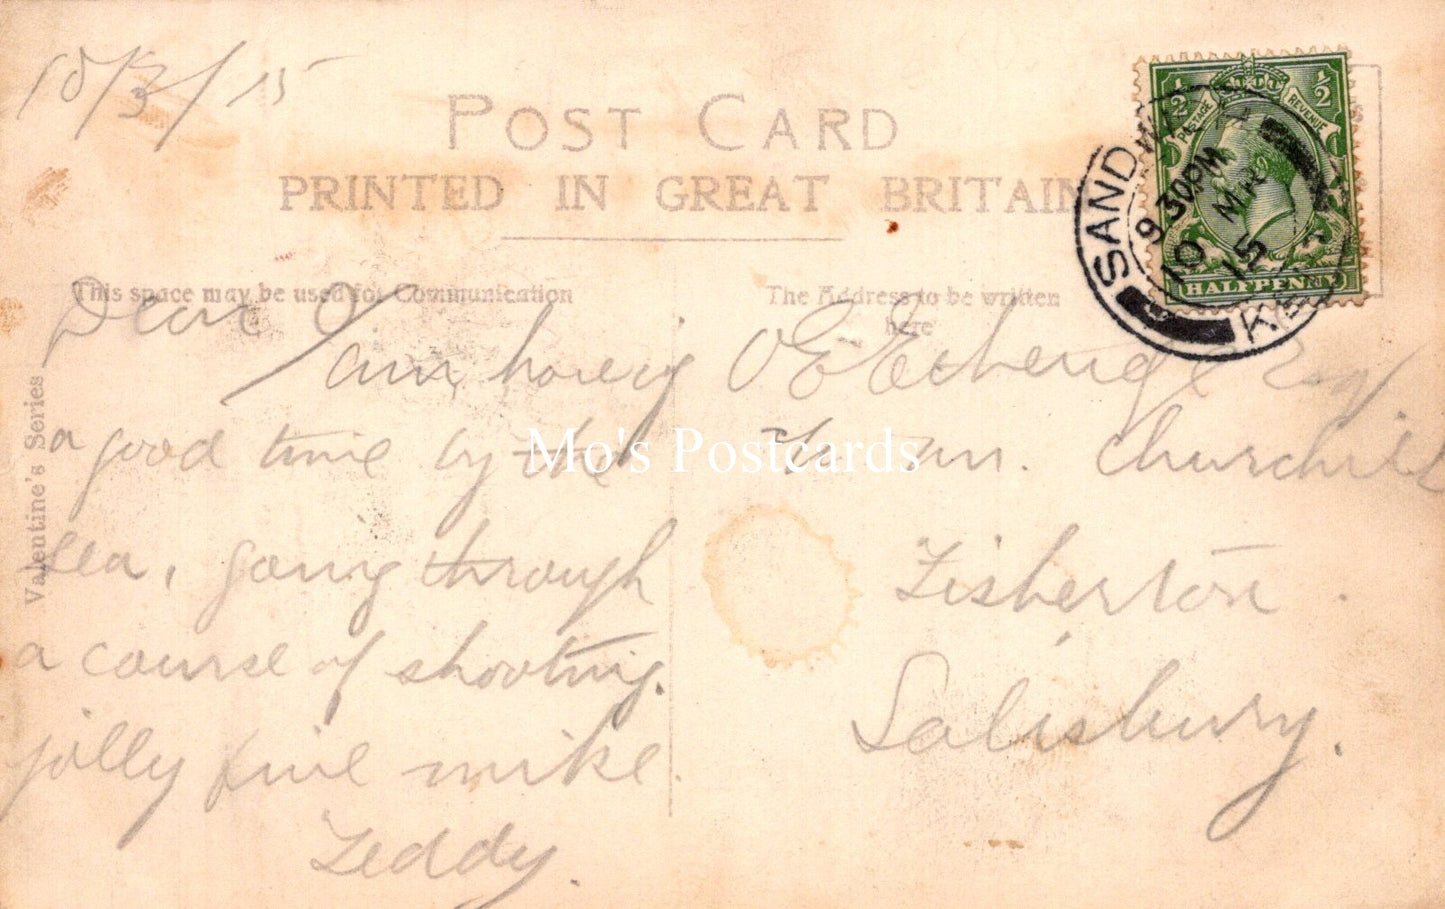 10/3/15
POST CARD
PRINTED IN GREAT BRITAIN
This space may be used for Communication
The Address to be written
here
Valentine's Series
½ ½
POSTAGE REVENUE
HALFPENNY
SAND KENT
9 30PM
10 MR
15
Dear O
I am having
a good time by the
sea, going through
a course of shooting.
jolly fine mike.
Teddy.
O E Etheridge Esq
Churchill
Fisherton
Salisbury.
Mo's Postcards